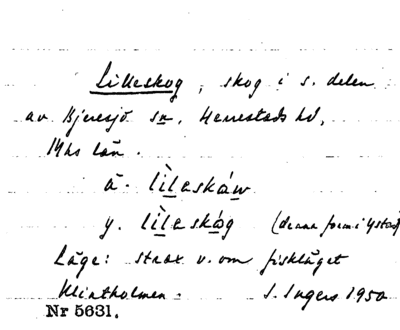 Lilleskog, skog i s. delen
av Bjeresjö sn, Herrestads hd,
Mhs län.
ä. lìleskáw
y. lìleskóg (denna form i Ystad)
Läge: strax v. om fiskläget
Klintholmen. S. Ingers 1950
Nr 5631.